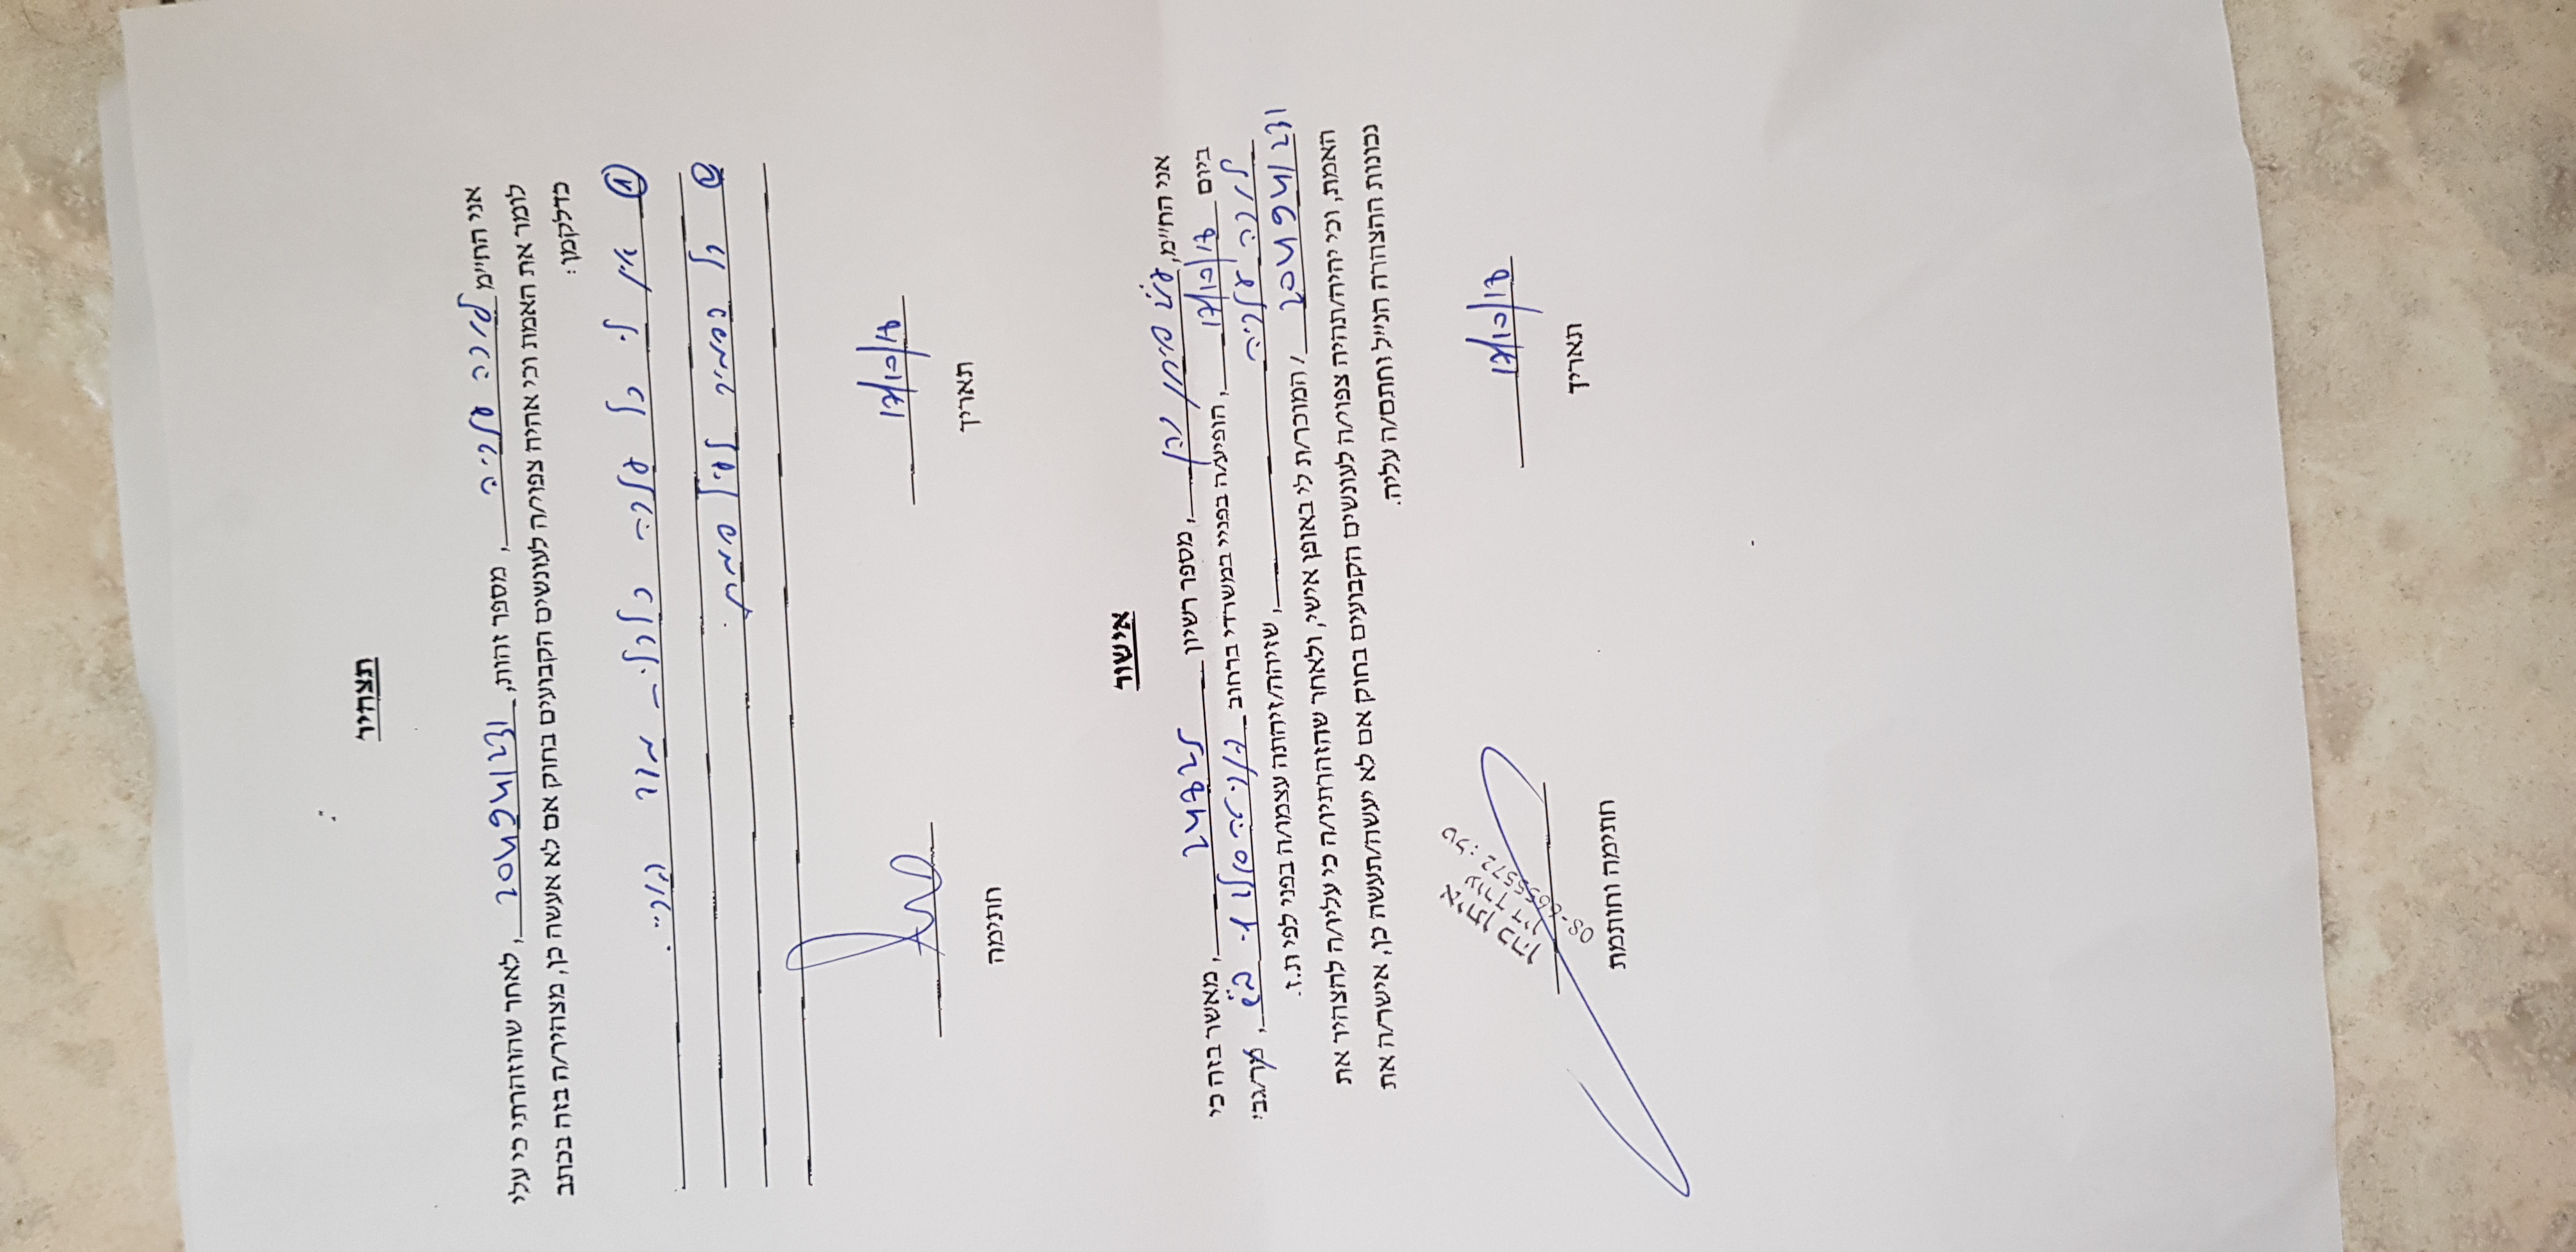 תצהיר
אני החי"מ לורה עלריה, מספר זהות, 204941231, לאחר שהוזהרתי כי עלי
לומר את האמת וכי אהיה צפוי/ה לעונשים הקבועים בחוק אם לא אעשה כן, מצהיר/ה בזה בכתב
כדלקמן:
① אין לי כל
② כל האמור לעיל אמת.
17/10/18
תאריך
חתימה
אישור
אני החי"מ, עו"ד איתן כהן, מספר רשיון, מאשר בזה כי
ביום 17/10/18, הופיע/ה בפניי במשרדי ברחוב, מר/גבי
שזיהה/זיהתה עצמו/ה בפני לפי ת.ז.
/ המוכר/ת לי באופן אישי, ולאחר שהזהרתיו/ה כי עליו/ה להצהיר את
האמת, וכי יהיה/תהיה צפוי/ה לעונשים הקבועים בחוק אם לא יעשה/תעשה כן, אישר/ה את
נכונות ההצהרה הנ"ל וחתם/ה עליה.
17/10/18
תאריך
איתן כהן
עורך דין
טל: 08-6655572
חתימה וחותמת